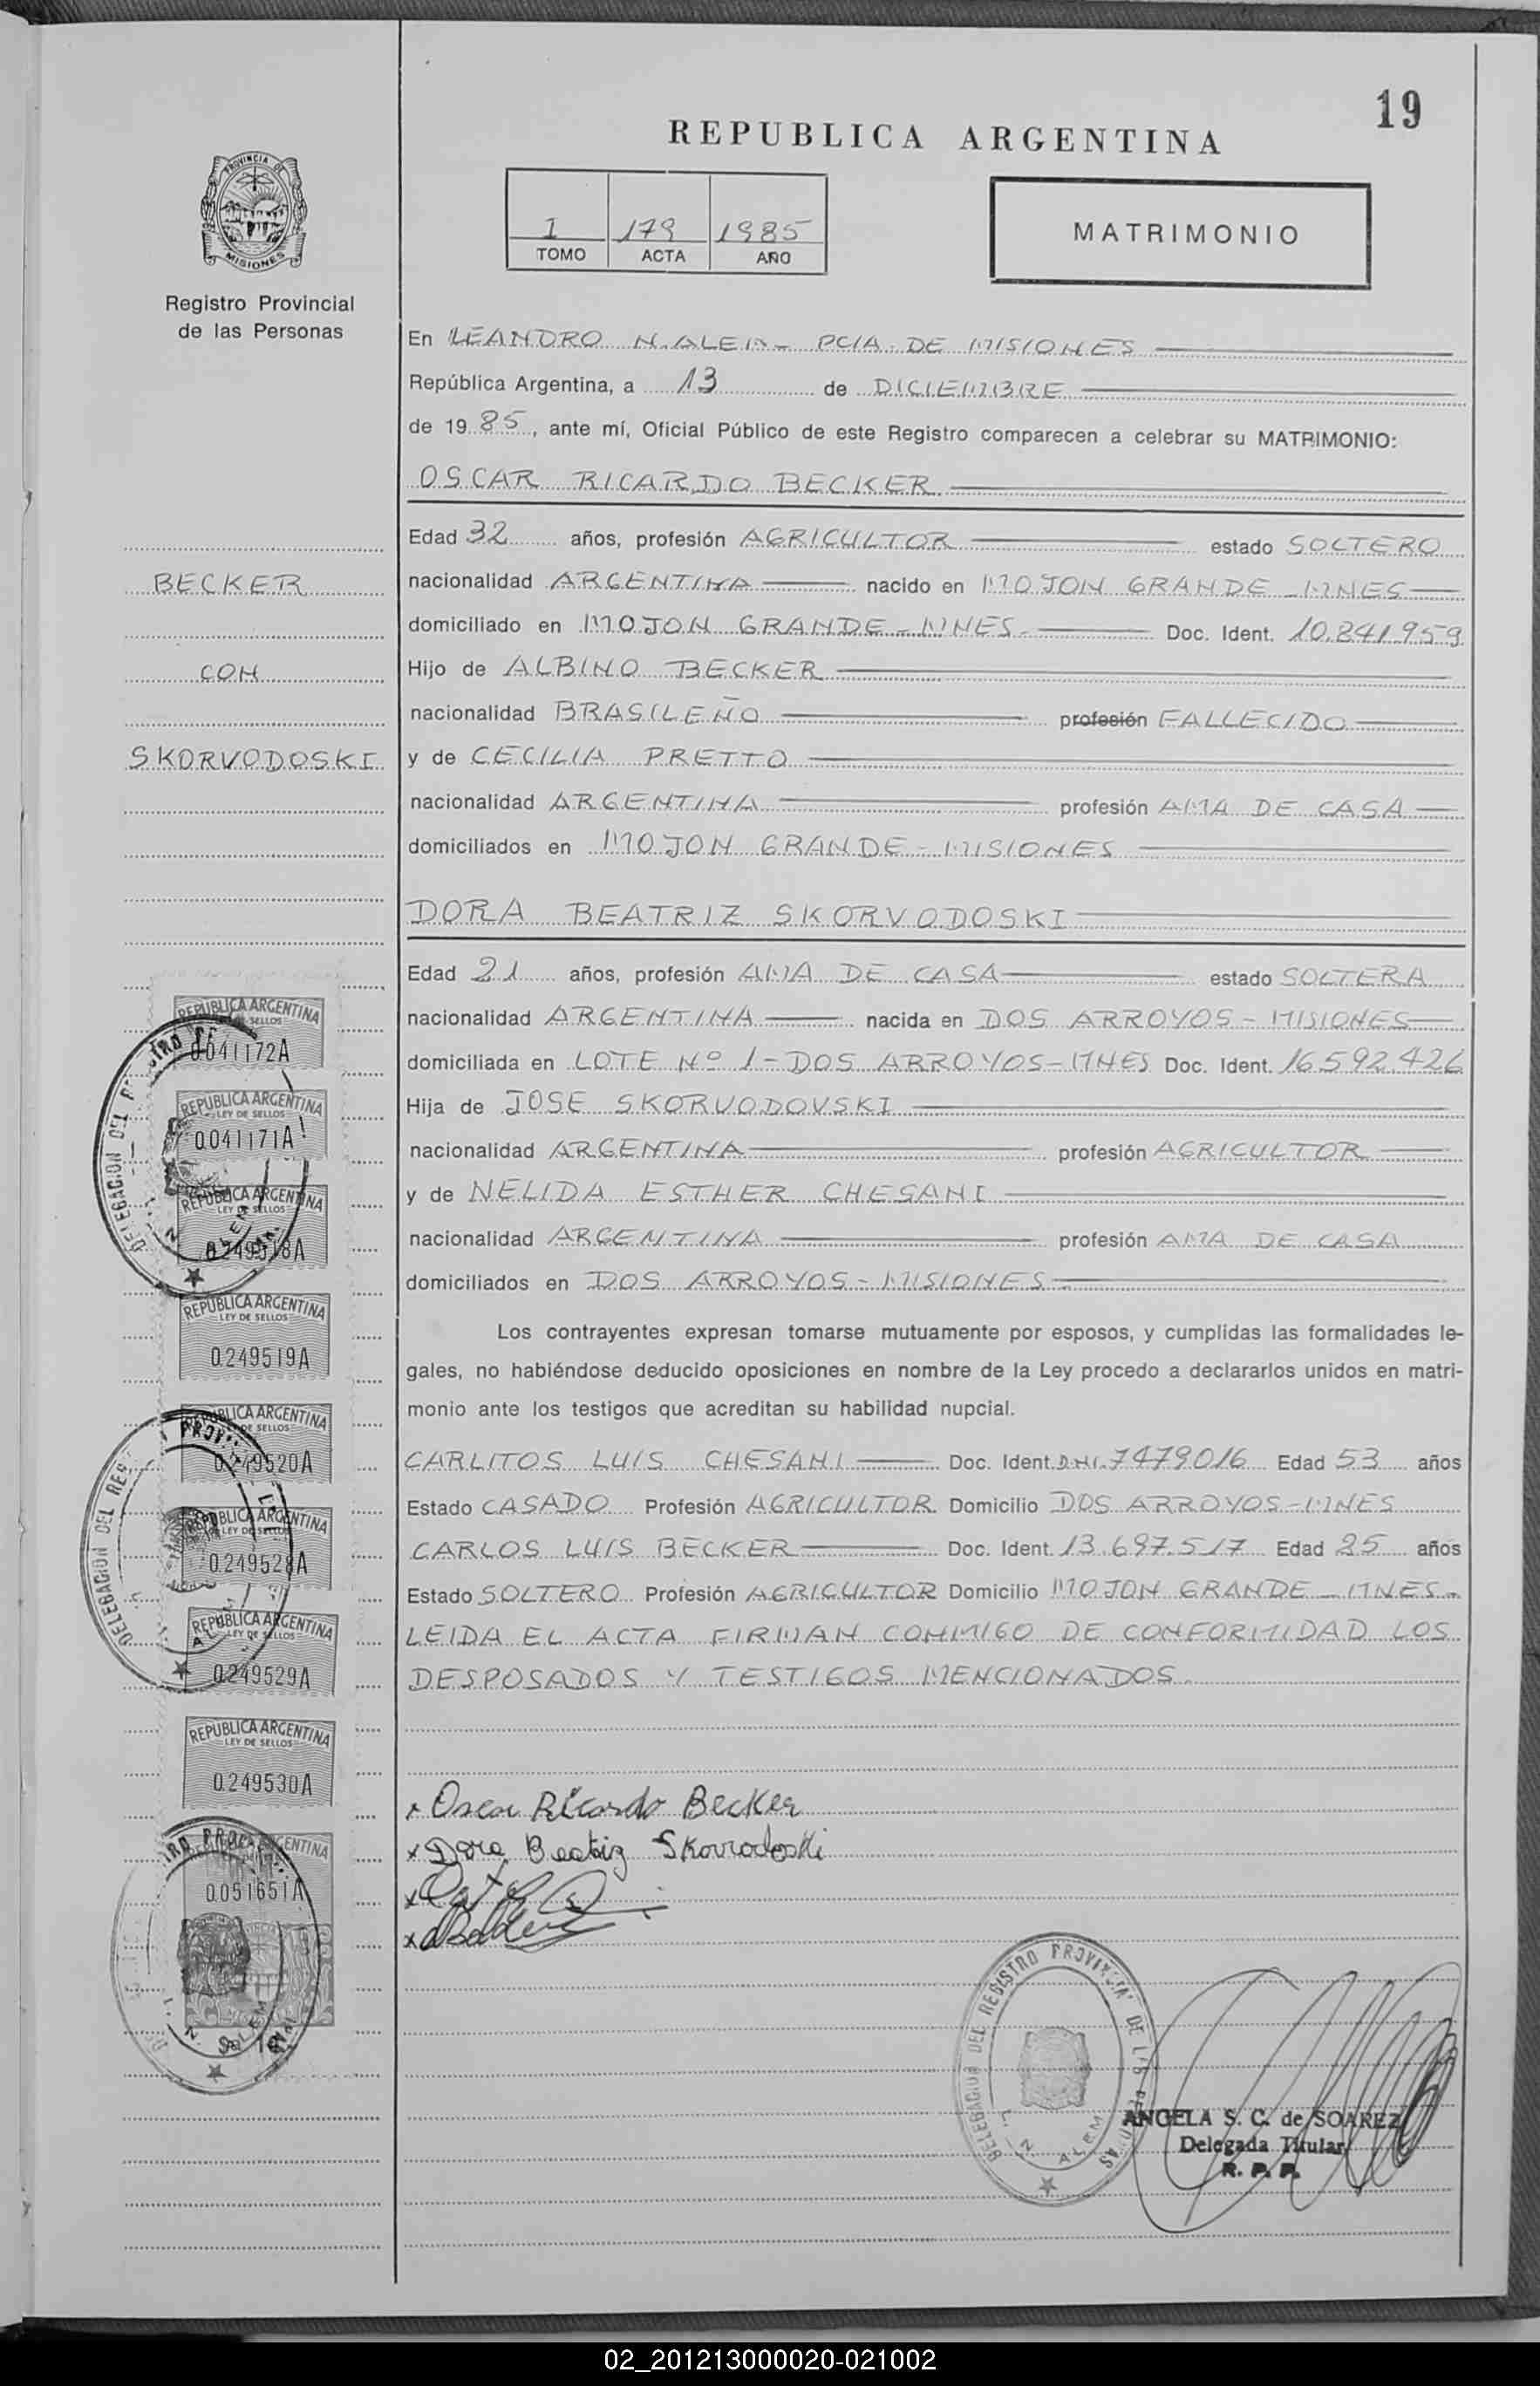 19
REPUBLICA ARGENTINA
PROVINCIA DE
MISIONES
Registro Provincial
de las Personas
I 179 1985
TOMO ACTA AÑO
MATRIMONIO
En LEANDRO N. ALEM - PCIA. DE MISIONES
República Argentina, a 13 de DICIEMBRE
de 1985, ante mí, Oficial Público de este Registro comparecen a celebrar su MATRIMONIO:
OSCAR RICARDO BECKER
Edad 32 años, profesión AGRICULTOR estado SOLTERO
BECKER
nacionalidad ARGENTINA nacido en MOJON GRANDE - MNES
domiciliado en MOJON GRANDE - MNES- Doc. Ident. 10.841.959
CON
Hijo de ALBINO BECKER
nacionalidad BRASILEÑO profesión FALLECIDO
SKORVODOSKI
y de CECILIA PRETTO
nacionalidad ARGENTINA profesión AMA DE CASA
domiciliados en MOJON GRANDE - MISIONES
DORA BEATRIZ SKORVODOSKI
Edad 21 años, profesión AMA DE CASA estado SOLTERA
nacionalidad ARGENTINA nacida en DOS ARROYOS - MISIONES
domiciliada en LOTE Nº 1 - DOS ARROYOS - MNES Doc. Ident. 16.592.426
Hija de JOSE SKORVODOVSKI
nacionalidad ARGENTINA profesión AGRICULTOR
y de NELIDA ESTHER CHESANI
nacionalidad ARGENTINA profesión AMA DE CASA
domiciliados en DOS ARROYOS - MISIONES
Los contrayentes expresan tomarse mutuamente por esposos, y cumplidas las formalidades le-
gales, no habiéndose deducido oposiciones en nombre de la Ley procedo a declararlos unidos en matri-
monio ante los testigos que acreditan su habilidad nupcial.
CARLITOS LUIS CHESANI Doc. Ident. D.N.I. 7479016 Edad 53 años
Estado CASADO Profesión AGRICULTOR Domicilio DOS ARROYOS - MNES
CARLOS LUIS BECKER Doc. Ident. 13.697.517 Edad 25 años
Estado SOLTERO Profesión AGRICULTOR Domicilio MOJON GRANDE - MNES -
LEIDA EL ACTA FIRMAN CONMIGO DE CONFORMIDAD LOS
DESPOSADOS Y TESTIGOS MENCIONADOS.
REPUBLICA ARGENTINA
LEY DE SELLOS
0.041172A
REPUBLICA ARGENTINA
LEY DE SELLOS
0.041171A
REPUBLICA ARGENTINA
LEY DE SELLOS
0.249518A
REPUBLICA ARGENTINA
LEY DE SELLOS
0.249519A
REPUBLICA ARGENTINA
LEY DE SELLOS
0.249520A
REPUBLICA ARGENTINA
LEY DE SELLOS
0.249528A
REPUBLICA ARGENTINA
LEY DE SELLOS
0.249529A
REPUBLICA ARGENTINA
LEY DE SELLOS
0.249530A
0.051651A
x Oscar Ricardo Becker
x Dora Beatriz Skorvodoski
DELEGACION DEL REGISTRO PROVINCIAL DE LAS PERSONAS
L. N. ALEM
ANGELA S. C. de SOAREZ
Delegada Titular
R. P. P.
02_201213000020-021002